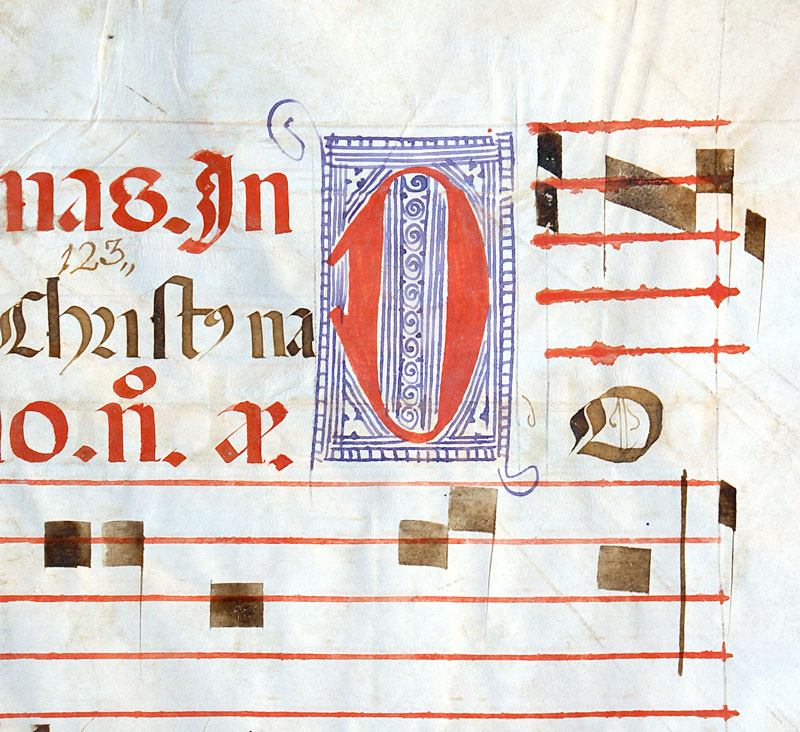 nas. In O
123,,
Christ⁹ na
no. n̊. æ. D